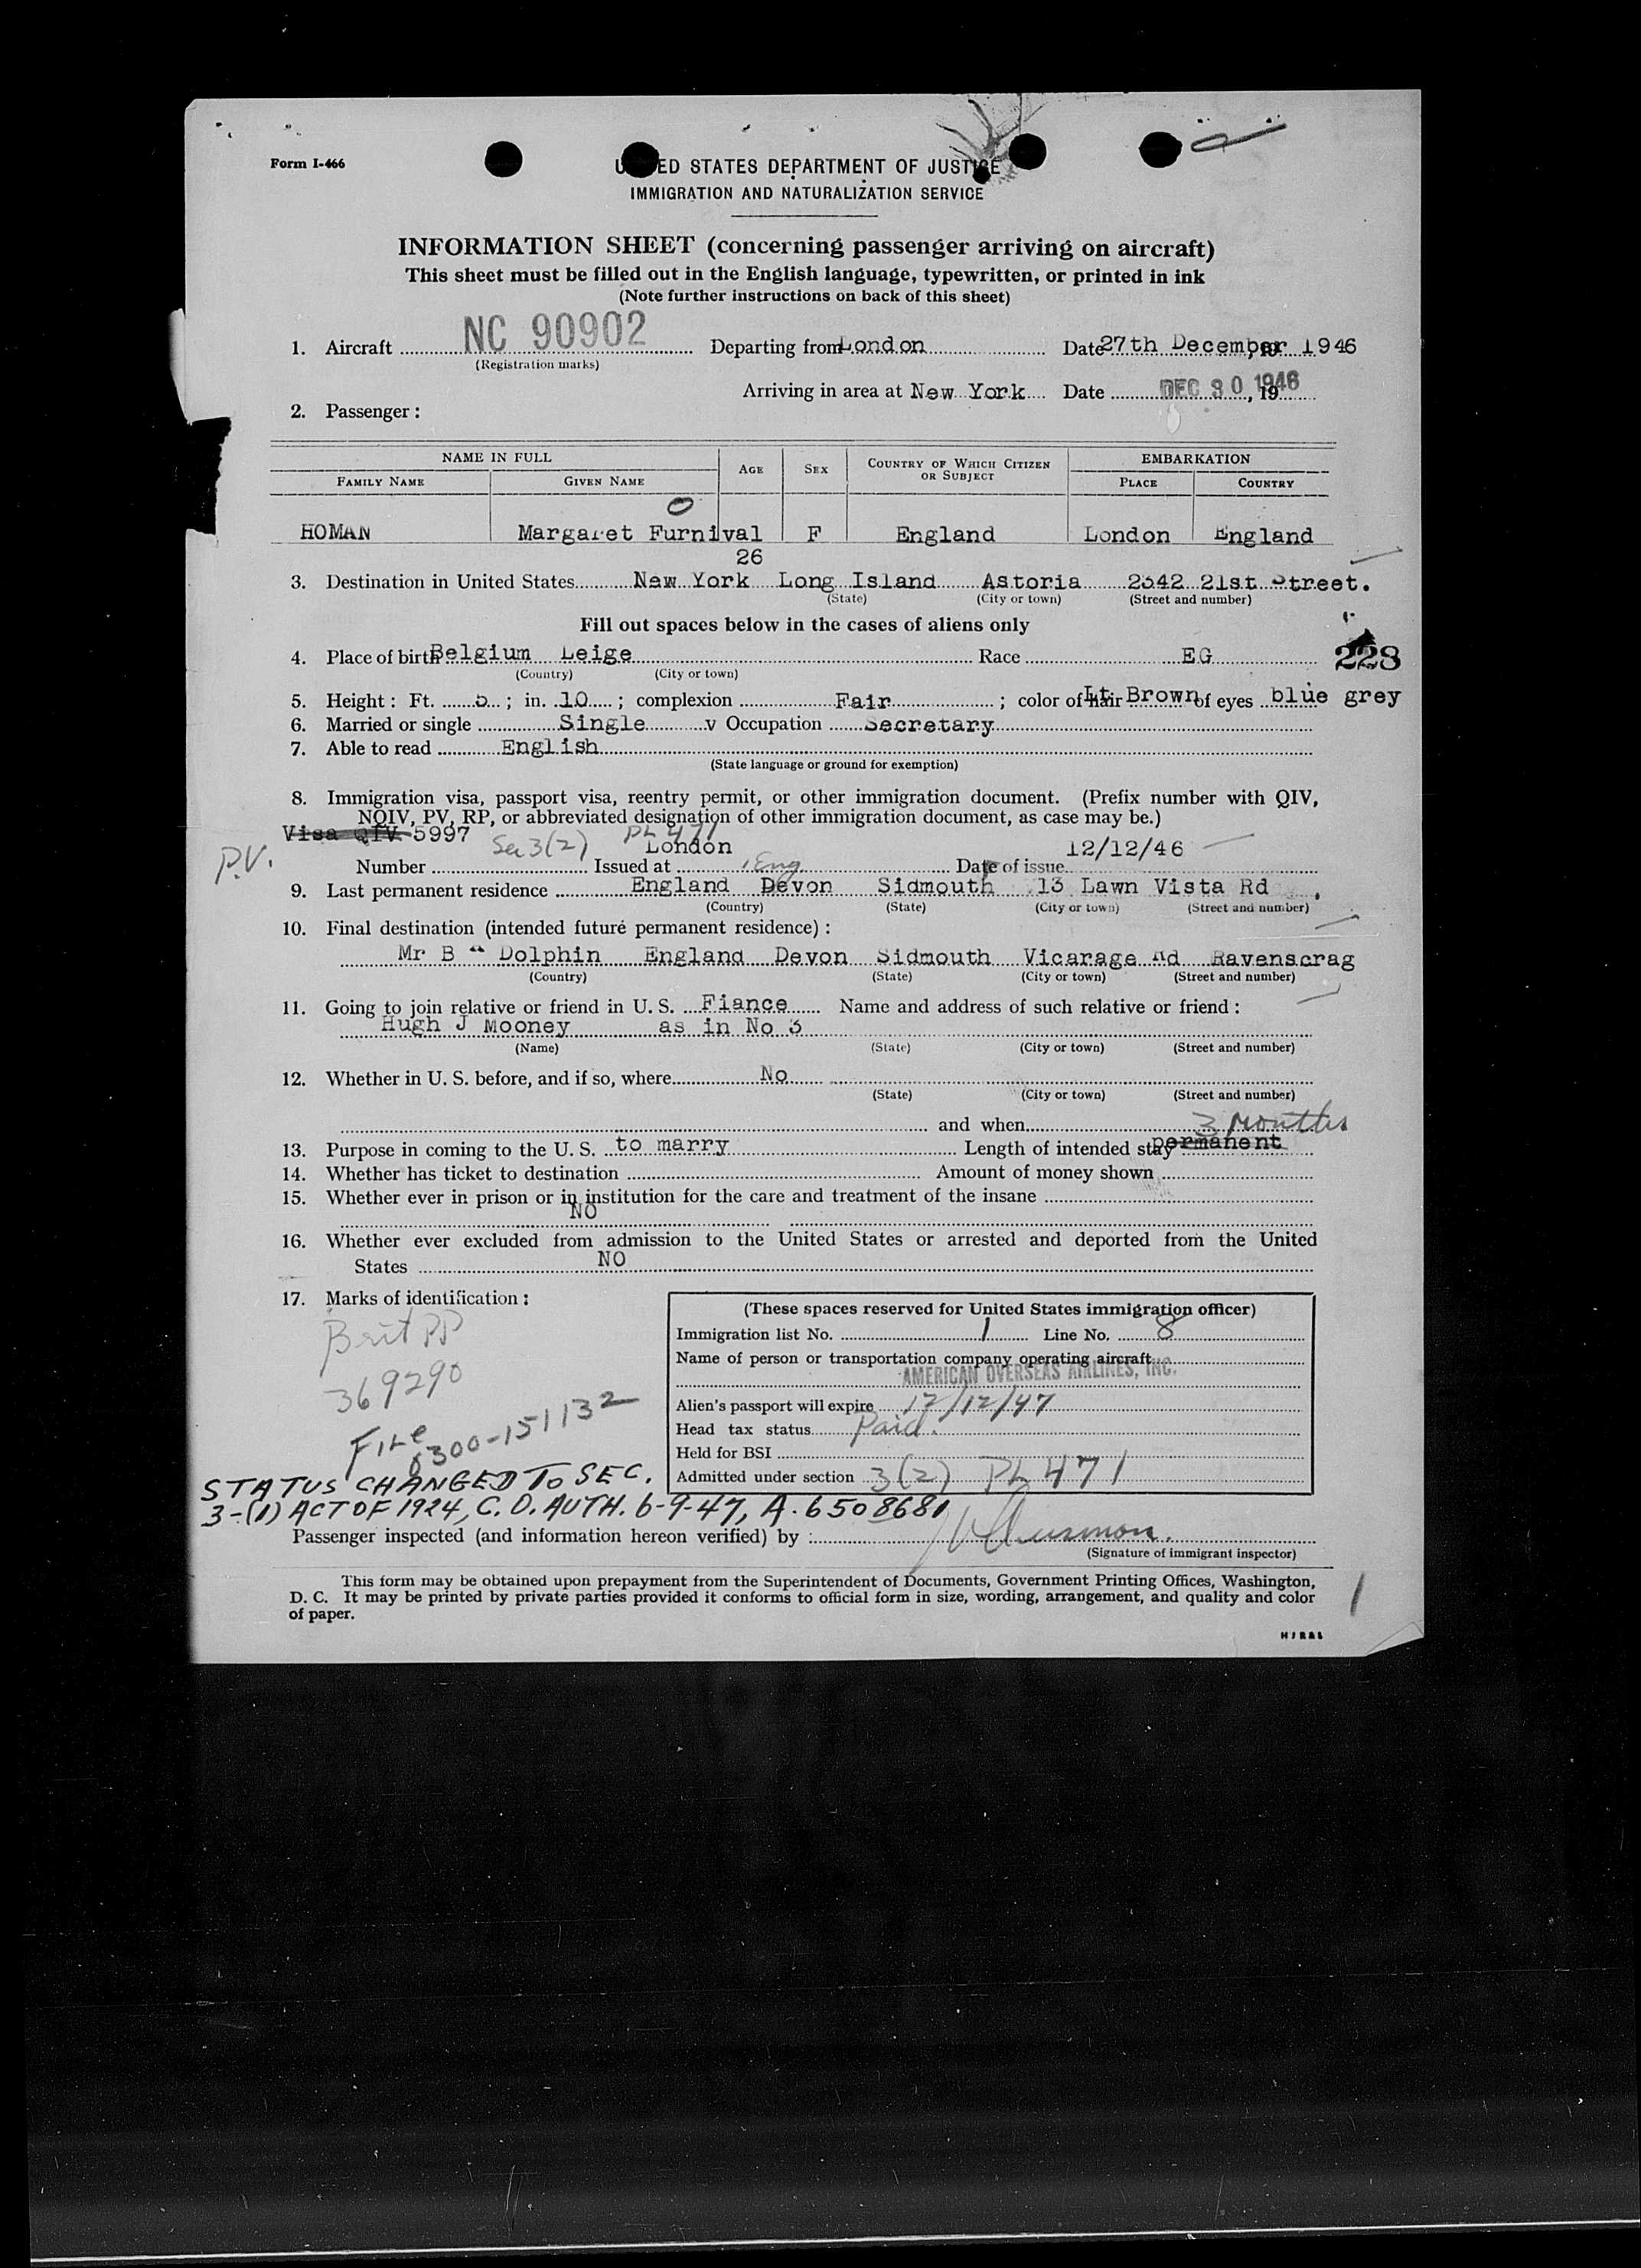 Form I-466
UNITED STATES DEPARTMENT OF JUSTICE
IMMIGRATION AND NATURALIZATION SERVICE
INFORMATION SHEET (concerning passenger arriving on aircraft)
This sheet must be filled out in the English language, typewritten, or printed in ink
(Note further instructions on back of this sheet)
1. Aircraft NC 90902 Departing from London Date 27th December 1946
(Registration marks)
Arriving in area at New York Date DEC 30 1946, 19
2. Passenger:
NAME IN FULL AGE SEX COUNTRY OF WHICH CITIZEN OR SUBJECT EMBARKATION
FAMILY NAME GIVEN NAME PLACE COUNTRY
HOMAN Margaret Furnival F England London England
26
3. Destination in United States New York Long Island Astoria 2342 21st Street.
(State) (City or town) (Street and number)
Fill out spaces below in the cases of aliens only
4. Place of birth Belgium Leige Race EG 228
(Country) (City or town)
5. Height: Ft. 5; in. 10; complexion Fair; color of hair Lt Brown of eyes blue grey
6. Married or single Single v Occupation Secretary
7. Able to read English
(State language or ground for exemption)
8. Immigration visa, passport visa, reentry permit, or other immigration document. (Prefix number with QIV,
NQIV, PV, RP, or abbreviated designation of other immigration document, as case may be.)
Visa QIV 5997 Sec 3(2) PL 471 London 12/12/46
P.V. Number Issued at Eng Date of issue
9. Last permanent residence England Devon Sidmouth 13 Lawn Vista Rd
(Country) (State) (City or town) (Street and number)
10. Final destination (intended future permanent residence):
Mr B Dolphin England Devon Sidmouth Vicarage Rd Ravenscrag
(Country) (State) (City or town) (Street and number)
11. Going to join relative or friend in U. S. Fiance Name and address of such relative or friend:
Hugh J Mooney as in No 3
(Name) (State) (City or town) (Street and number)
12. Whether in U. S. before, and if so, where No
(State) (City or town) (Street and number)
and when 3 Months
13. Purpose in coming to the U. S. to marry Length of intended stay permanent
14. Whether has ticket to destination Amount of money shown
15. Whether ever in prison or in institution for the care and treatment of the insane
NO
16. Whether ever excluded from admission to the United States or arrested and deported from the United
States NO
17. Marks of identification:
Brit PP
369290
FILE 0300-151132
STATUS CHANGED TO SEC.
3-(1) ACT OF 1924, C.O. AUTH. 6-9-47, A-6508681
(These spaces reserved for United States immigration officer)
Immigration list No. 1 Line No. 8
Name of person or transportation company operating aircraft
AMERICAN OVERSEAS AIRLINES, INC.
Alien's passport will expire 12/12/47
Head tax status Paid.
Held for BSI
Admitted under section 3(2) PL 471
Passenger inspected (and information hereon verified) by:
(Signature of immigrant inspector)
This form may be obtained upon prepayment from the Superintendent of Documents, Government Printing Offices, Washington,
D. C. It may be printed by private parties provided it conforms to official form in size, wording, arrangement, and quality and color
of paper.
1